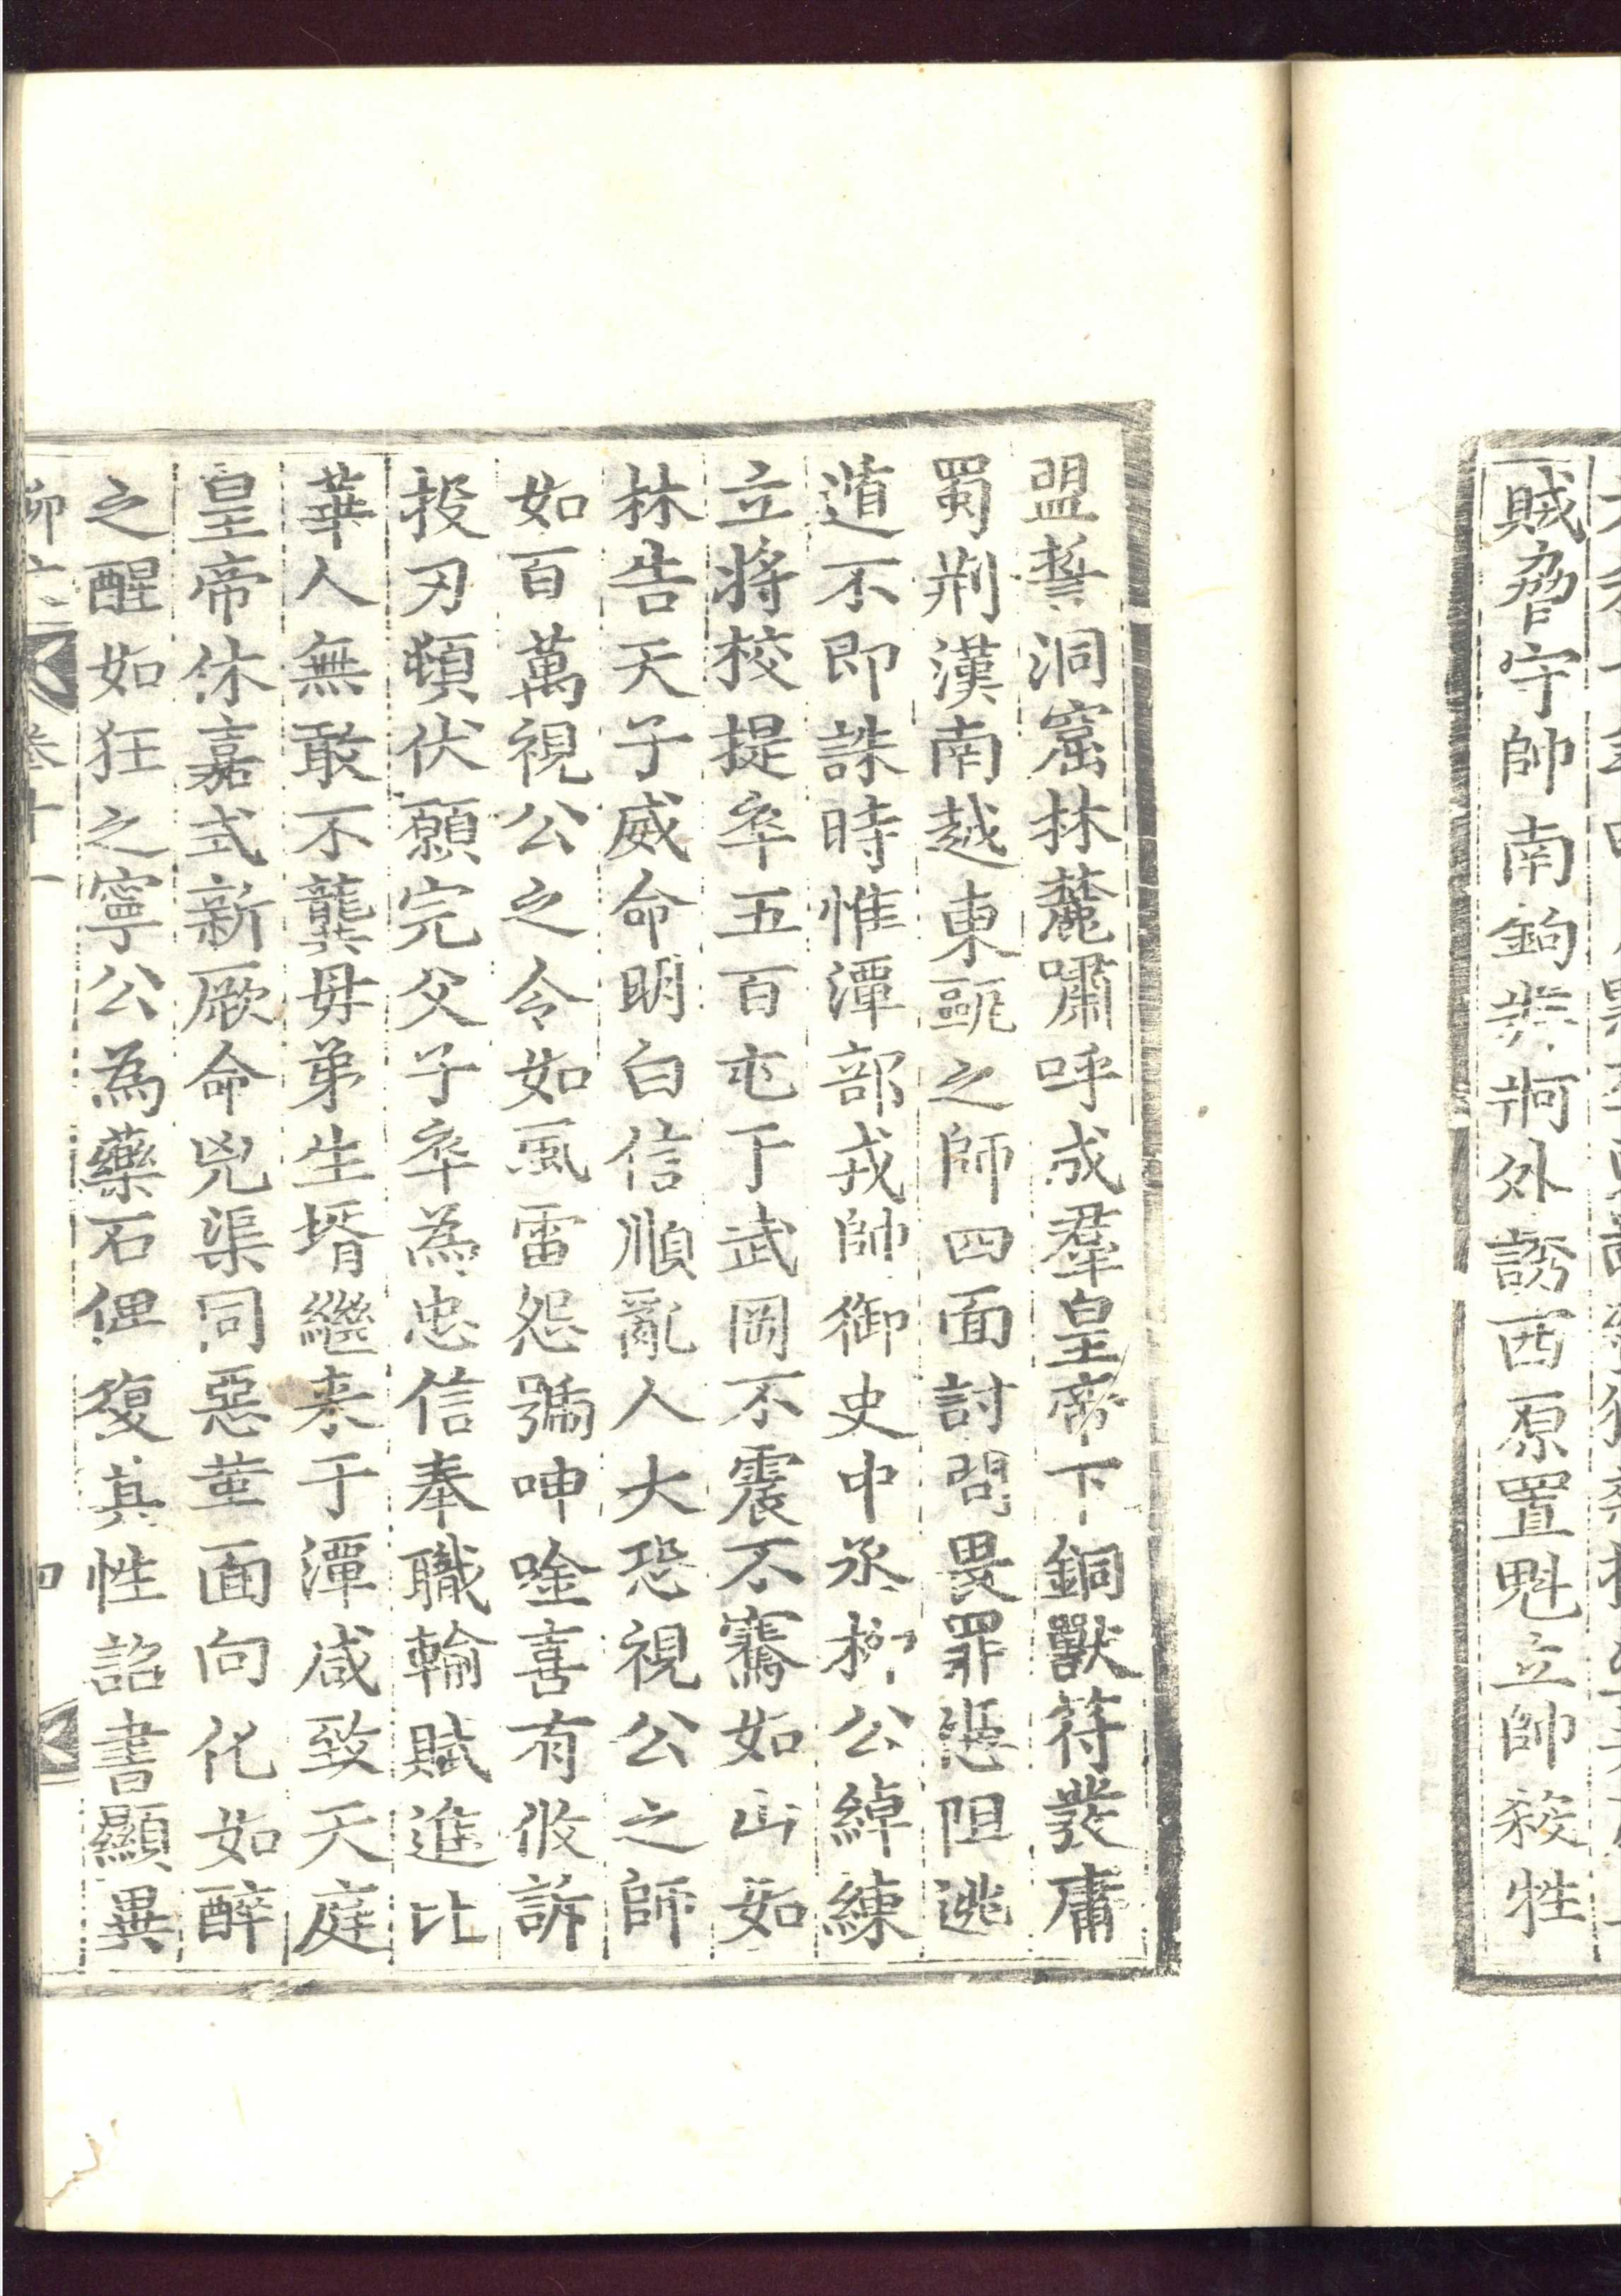 賊脅守帥南鉤牂牁外誘西原置魁立帥殺牲
盟誓洞窟林麓嘯呼成羣皇帝下銅獸符發庸
蜀荆漢南越東甌之師四面討問畏罪慿阻逃
遁不即誅時惟潭部戎帥御史中丞栁公綽練
立將校提卒五百屯于武岡不震不騫如山如
林告天子威命明白信順亂人大恐視公之師
如百萬視公之令如風雷怨號呻唫喜有攸訴
投刃頓伏願完父子卒為忠信奉職輸賦進比
華人無敢不龔毋弟生壻繼来于潭咸致天庭
皇帝休嘉式新厥命兇渠同惡革面向化如醉
之醒如狂之寧公為藥石俾復其性詔書顯異
卷十一
四